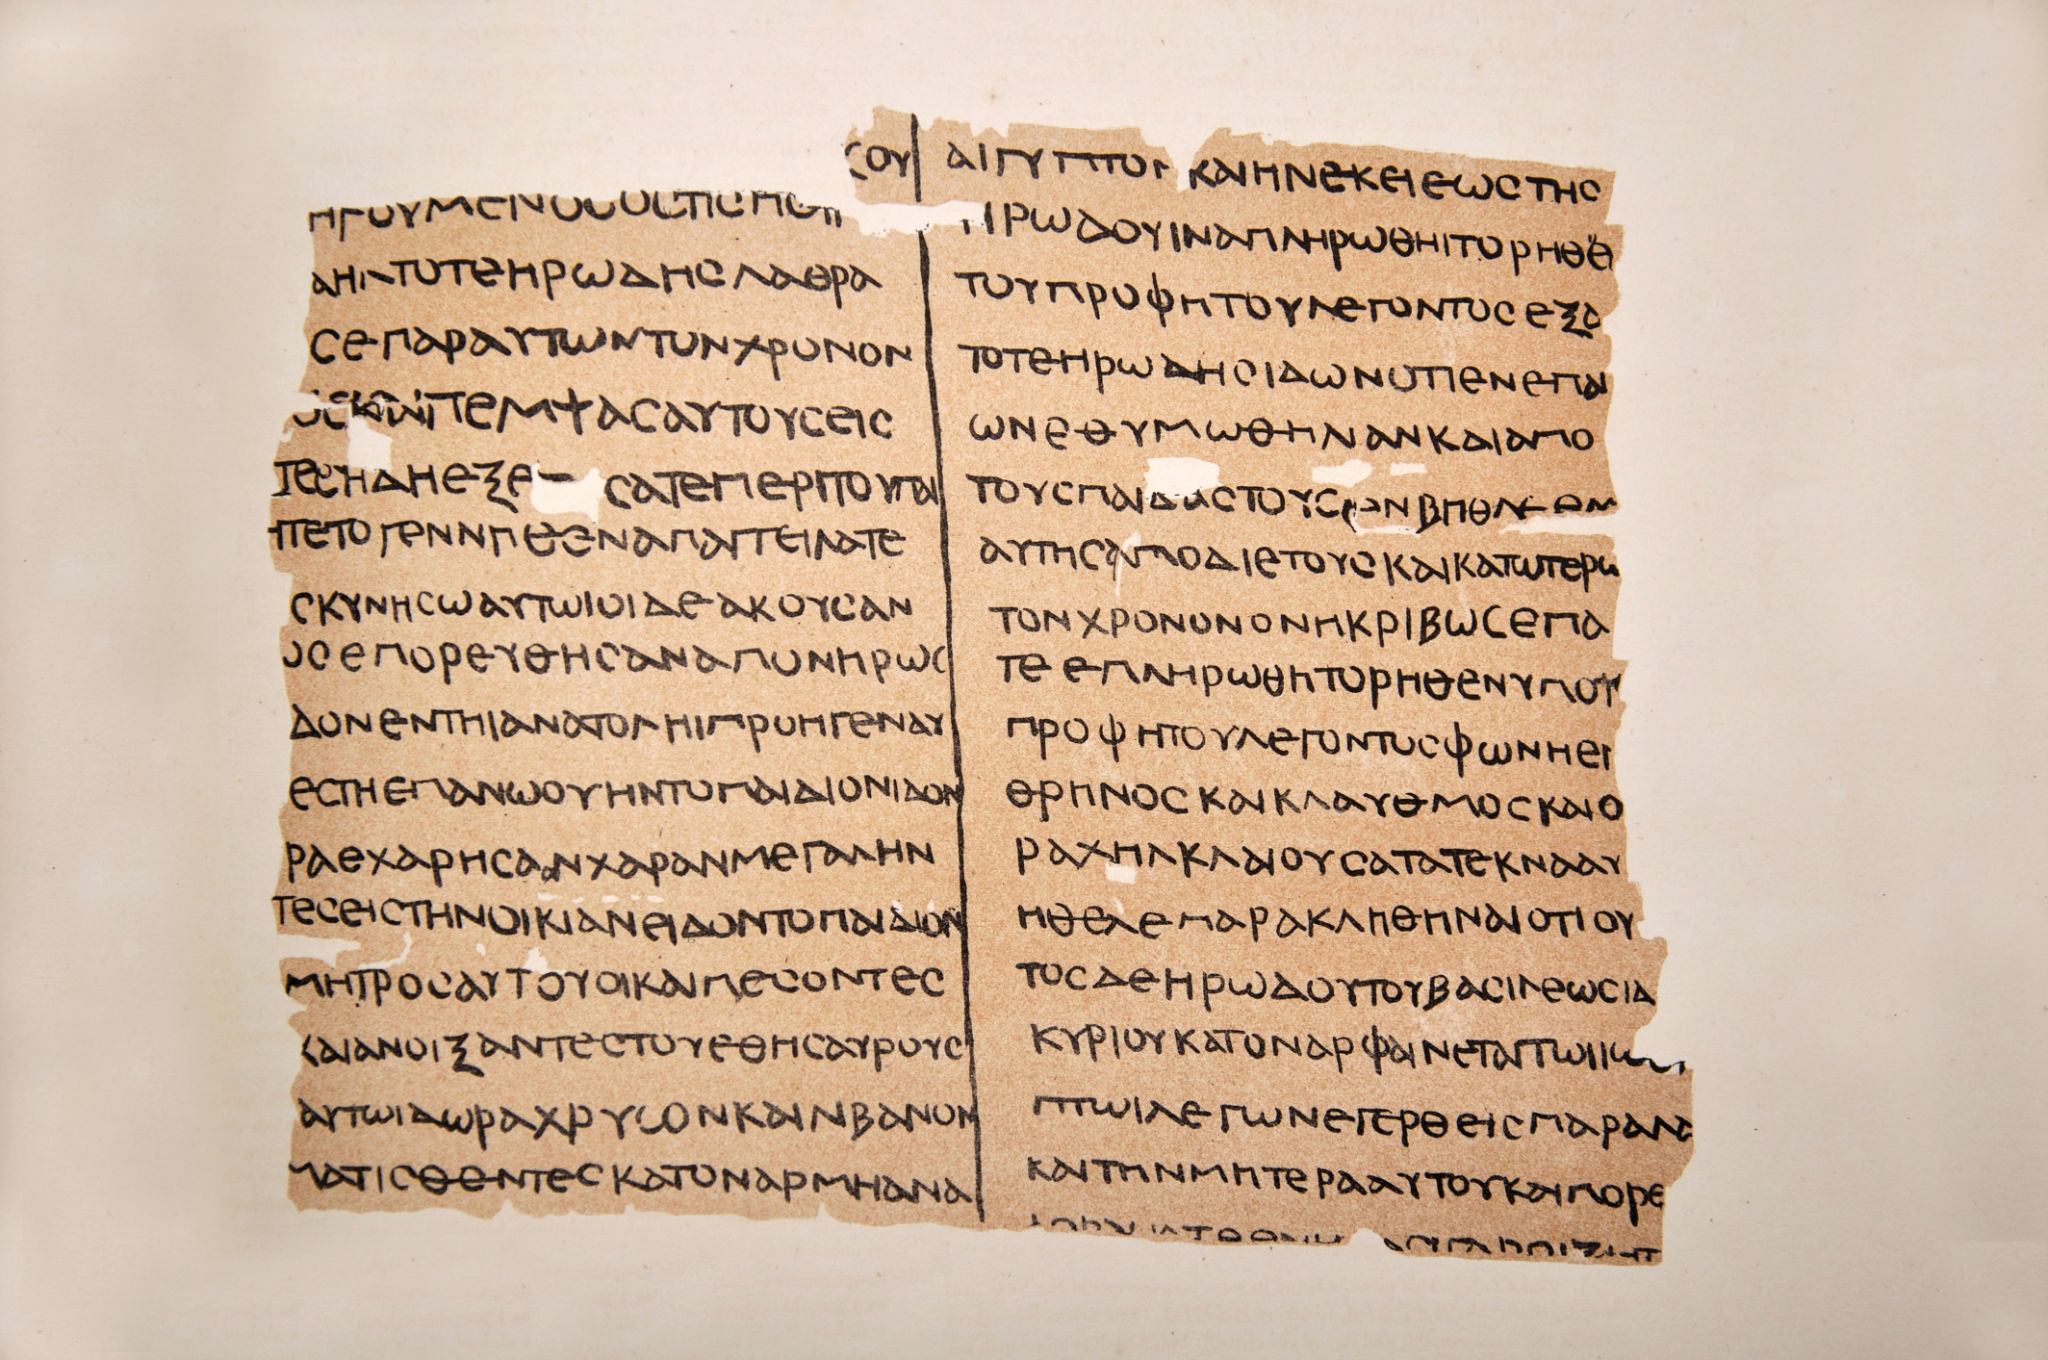 ϹΟΥ
ΗΓΟΥΜΕΝΟϹΟϹΤΙϹΠΟΙΜ
ΤΟΤΕΗΡΩΔΗϹΛΑΘΡΑ
ϹΕΠΑΡΑΥΤΩΝΤΟΝΧΡΟΝΟΝ
ΠΕΜΨΑϹΑΥΤΟΥϹΕΙϹ
ϹΑΤΕΠΕΡΙΤΟΥΠΑΙ
ΑΠΑΓΓΕΙΛΑΤΕ
ϹΚΥΝΗϹΩΑΥΤΩΙΟΙΔΕΑΚΟΥϹΑΝ
ΟϹΕΠΟΡΕΥΘΗϹΑΝΑΠΟΝΗΡΩϹ
ΔΟΝΕΝΤΗΙΑΝΑΤΟΛΗΙΠΡΟΗΓΕΝΑΥ
ΕϹΤΗΕΠΑΝΩΟΥΗΝΤΟΠΑΙΔΙΟΝΙΔΟΝ
ΡΑΕΧΑΡΗϹΑΝΧΑΡΑΝΜΕΓΑΛΗΝ
ΤΕϹΕΙϹΤΗΝΟΙΚΙΑΝΕΙΔΟΝΤΟΠΑΙΔΙΟΝ
ΜΗΤΡΟϹΑΥΤΟΥΟΙΚΑΙΠΕϹΟΝΤΕϹ
ΚΑΙΑΝΟΙΞΑΝΤΕϹΤΟΥΕΘΗϹΑΥΡΟΥϹ
ΑΥΤΩΙΔΩΡΑΧΡΥϹΟΝΚΑΙΛΙΒΑΝΟΝ
ΜΑΤΙϹΘΕΝΤΕϹΚΑΤΟΝΑΡΜΗΑΝΑ
ΑΙΓΥΠΤΟΝ ΚΑΙΗΝΕΚΕΙΕΩϹΤΗϹ
ΗΡΩΔΟΥΙΝΑΠΛΗΡΩΘΗΙΤΟΡΗΘΕ
ΤΟΥΠΡΟΦΗΤΟΥΛΕΓΟΝΤΟϹΕΞΑ
ΤΟΤΕΗΡΩΔΗϹΙΔΩΝΟΤΙΕΝΕΠΑΙ
ΩΝΕΘΥΜΩΘΗΛΙΑΝΚΑΙΑΠΟ
ΤΟΥϹΠΑΙΔΑϹΤΟΥϹΕΝΒΗΘΛΕΕΜ
ΑΥΤΗϹΑΠΟΔΙΕΤΟΥϹΚΑΙΚΑΤΩΤΕΡΩ
ΤΟΝΧΡΟΝΟΝΟΝΗΚΡΙΒΩϹΕΠΑ
ΤΕΕΠΛΗΡΩΘΗΤΟΡΗΘΕΝΥΠΟΤ
ΠΡΟΦΗΤΟΥΛΕΓΟΝΤΟϹΦΩΝΗΕΝ
ΘΡΗΝΟϹΚΑΙΚΛΑΥΘΜΟϹΚΑΙΟ
ΡΑΧΗΛΚΛΑΙΟΥϹΑΤΑΤΕΚΝΑΑΥ
ΗΘΕΛΕΠΑΡΑΚΛΗΘΗΝΑΙΟΤΙΟΥ
ΤΟϹΔΕΗΡΩΔΟΥΤΟΥΒΑϹΙΛΕΩϹΙΔ
ΚΥΡΙΟΥΚΑΤΟΝΑΡΦΑΙΝΕΤΑΙΤΩΙΙΩϹ
ΠΤΩΙΛΕΓΩΝΕΓΕΡΘΕΙϹΠΑΡΑΛΑ
ΚΑΙΤΗΝΜΗΤΕΡΑΑΥΤΟΥΚΑΙΠΟΡΕ